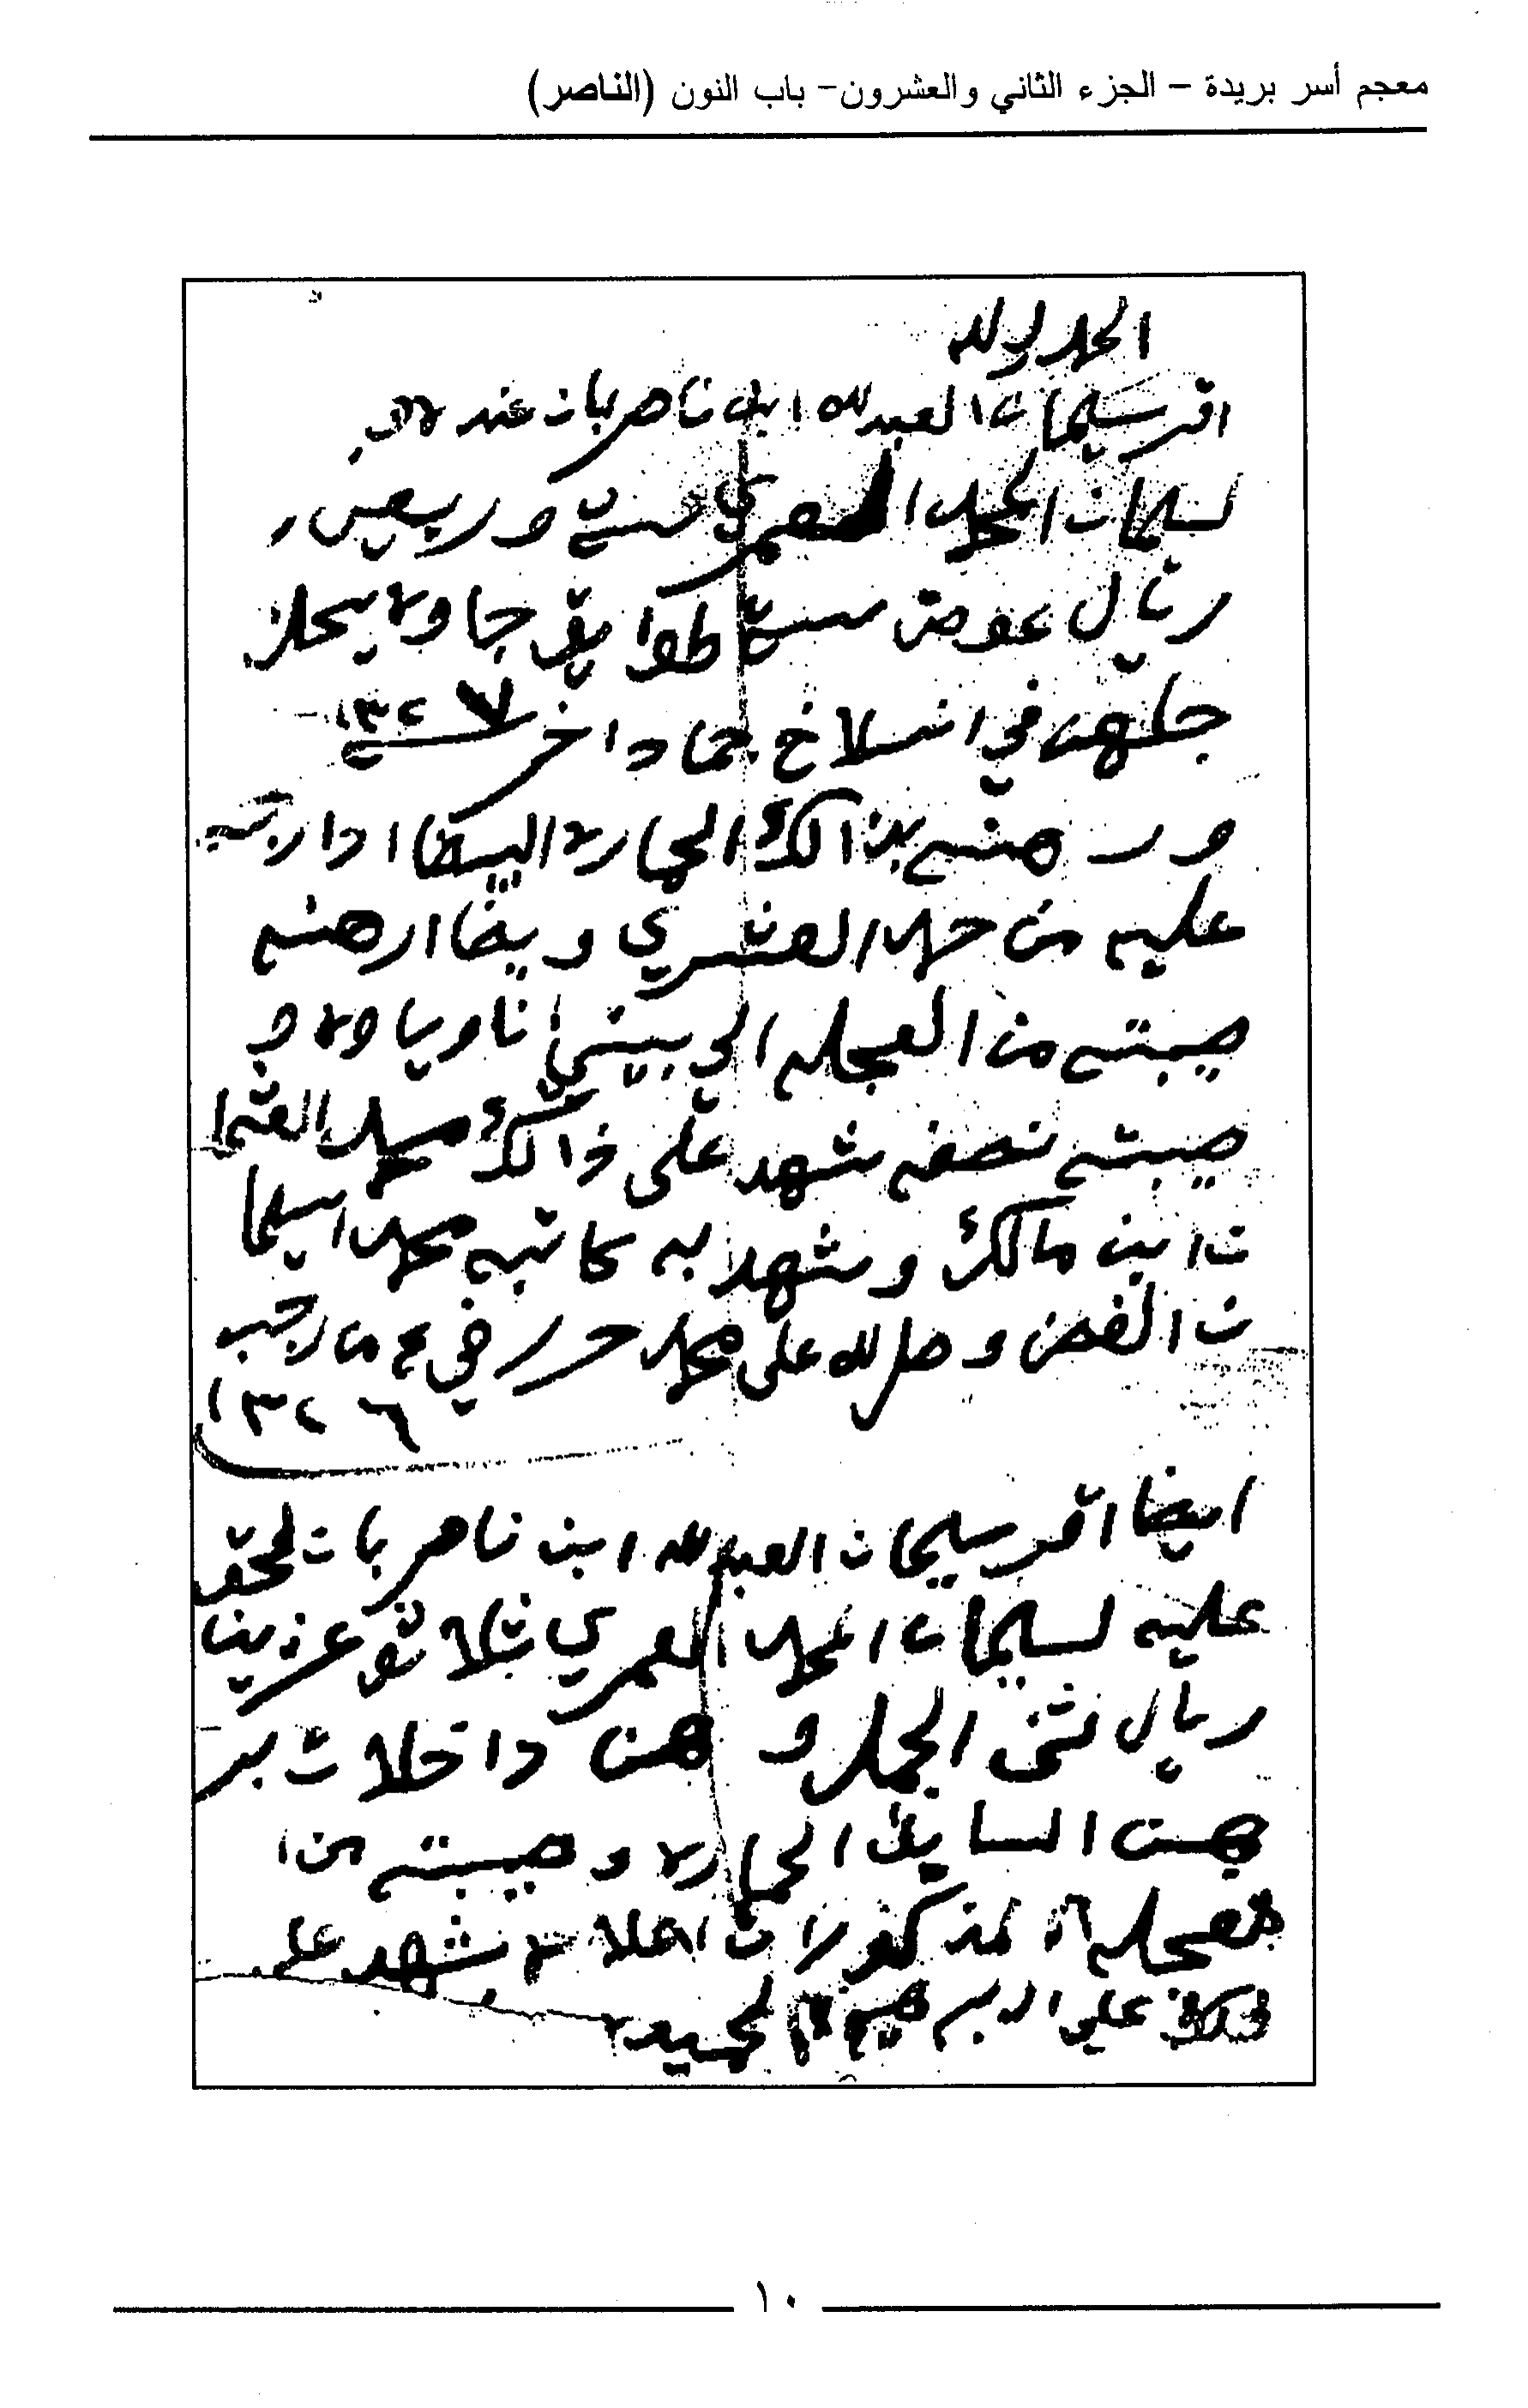 معجم أسر بريدة – الجزء الثاني والعشرون– باب النون (الناصر)
الحمد لله
اقر سليمان العبدلله ابن ناصر بان عنده
لسليمان المحمد العمري ستة وربعين
ريال عوض ستة طوايق جاو يحلن
جلهن في انسلاخ جماد اخر ١٣٢٧
ورهنه بذالك الحماره البيضا
عليه من حمد العشري ويضا ارهنه
صيبته من العجله
صيبته نصفه شهد على ذالك محمد العثما
ن ابن مالك وشهد به كاتبه محمد اسليما
ن الغصن وصل لله على محمد حرر في ٤ من رجب
١٣٢٦
ايضا اقر سليمان العبدلله ابن ناصر بان لحق
عليه لسليمان المحمد العمري ثلاثة عرين
ريال ثمن الجمل وهن داخلات بر
هن السابق الحماره وصيبته من ا
لعجله المذكورات اعلاه شهد على
ذلك علي البرهيم المحيميد
١٠